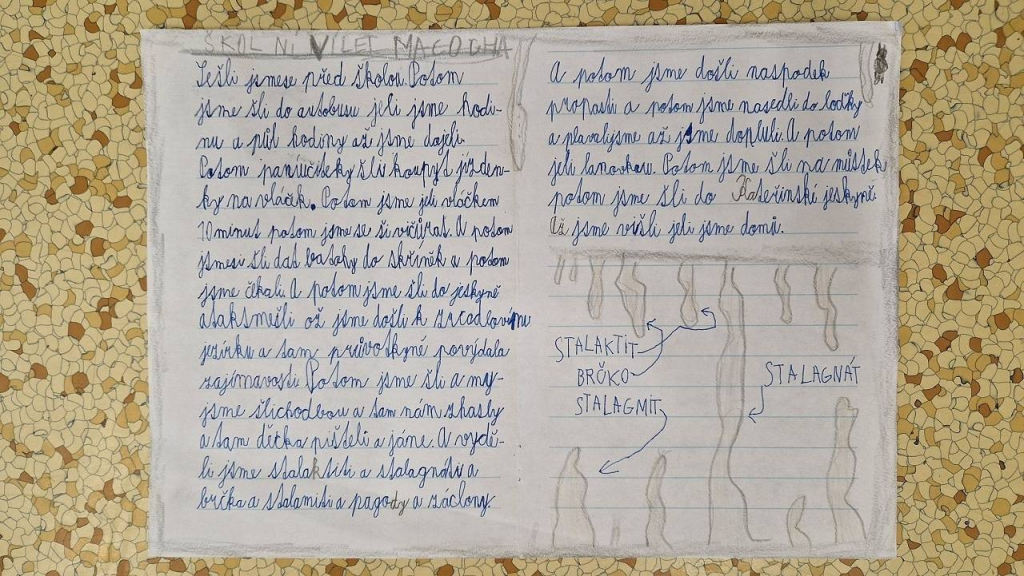 ŠKOLNÍ VÍLET MACOCHA
Sešli jsmese před školou. Potom
jsme šli do autobusu jeli jsme hodi-
nu a půl hodiny až jsme dojeli.
Potom paníučitelky šli koupyt jízden-
ky na vláček. Potom jsme jeli vláčkem
10 minut potom jsme se si vičůrat. A potom
jsmesi šli dat batohy do skříněk a potom
jsme čekali. A potom jsme šli do jeskyně
ataksmešli ož jsme došli k zrcadlovímu
jezírku a tam průvotkyně povýdala
zajímavosti. Potom jsme šli a my-
jsme šlichodbou a tam nám zhasly
a tam děcka pišteli a jáne. A vydě-
li jsme stalaktiti a stalagnáti a
brčka a stalamiti a pagody a záclony.
A potom jsme došli naspodek
propasti a potom jsme nasedli do loďky
a plavalijsme až jsme dopluli. A potom
jeli lanovkou. Potom jsme šli na můstek
potom jsme šli do Kateřinské jeskyně
Až jsme višli jeli jsme domů.
STALAKTIT
BRČKO
STALAGMIT
STALAGNÁT